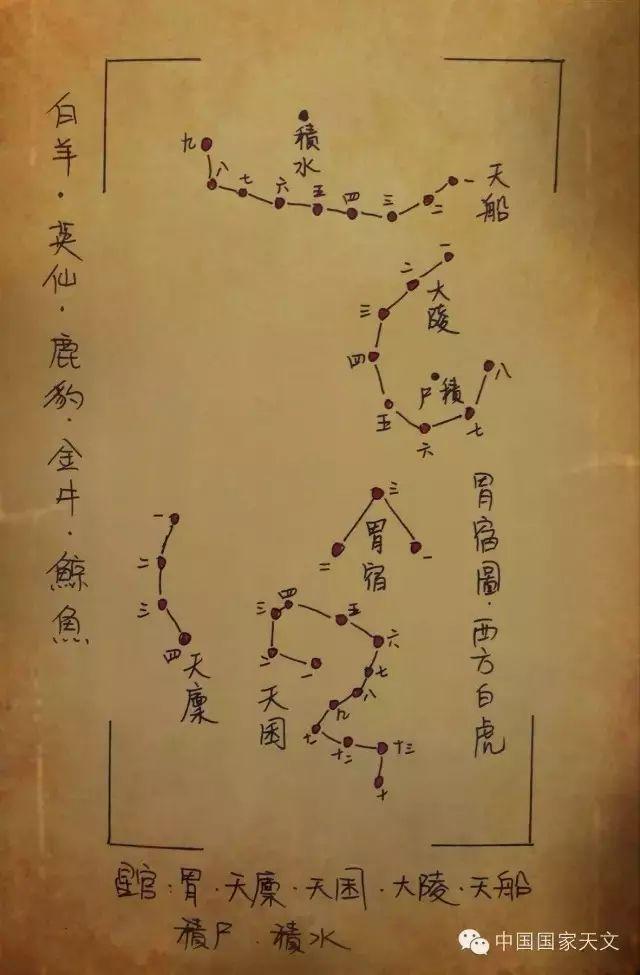 白羊·英仙·鹿豹·金牛·鲸魚
胃宿圖·西方白虎
積水
九
八
七
六
五
四
三
二
一
天船
一
二
三
四
五
六
七
八
大陵
積尸
三
二
一
胃宿
一
二
三
四
天廩
一
二
三
四
五
六
七
八
九
十二
十三
十
天囷
星官·胃·天廩·天囷·大陵·天船
積尸·積水
中国国家天文